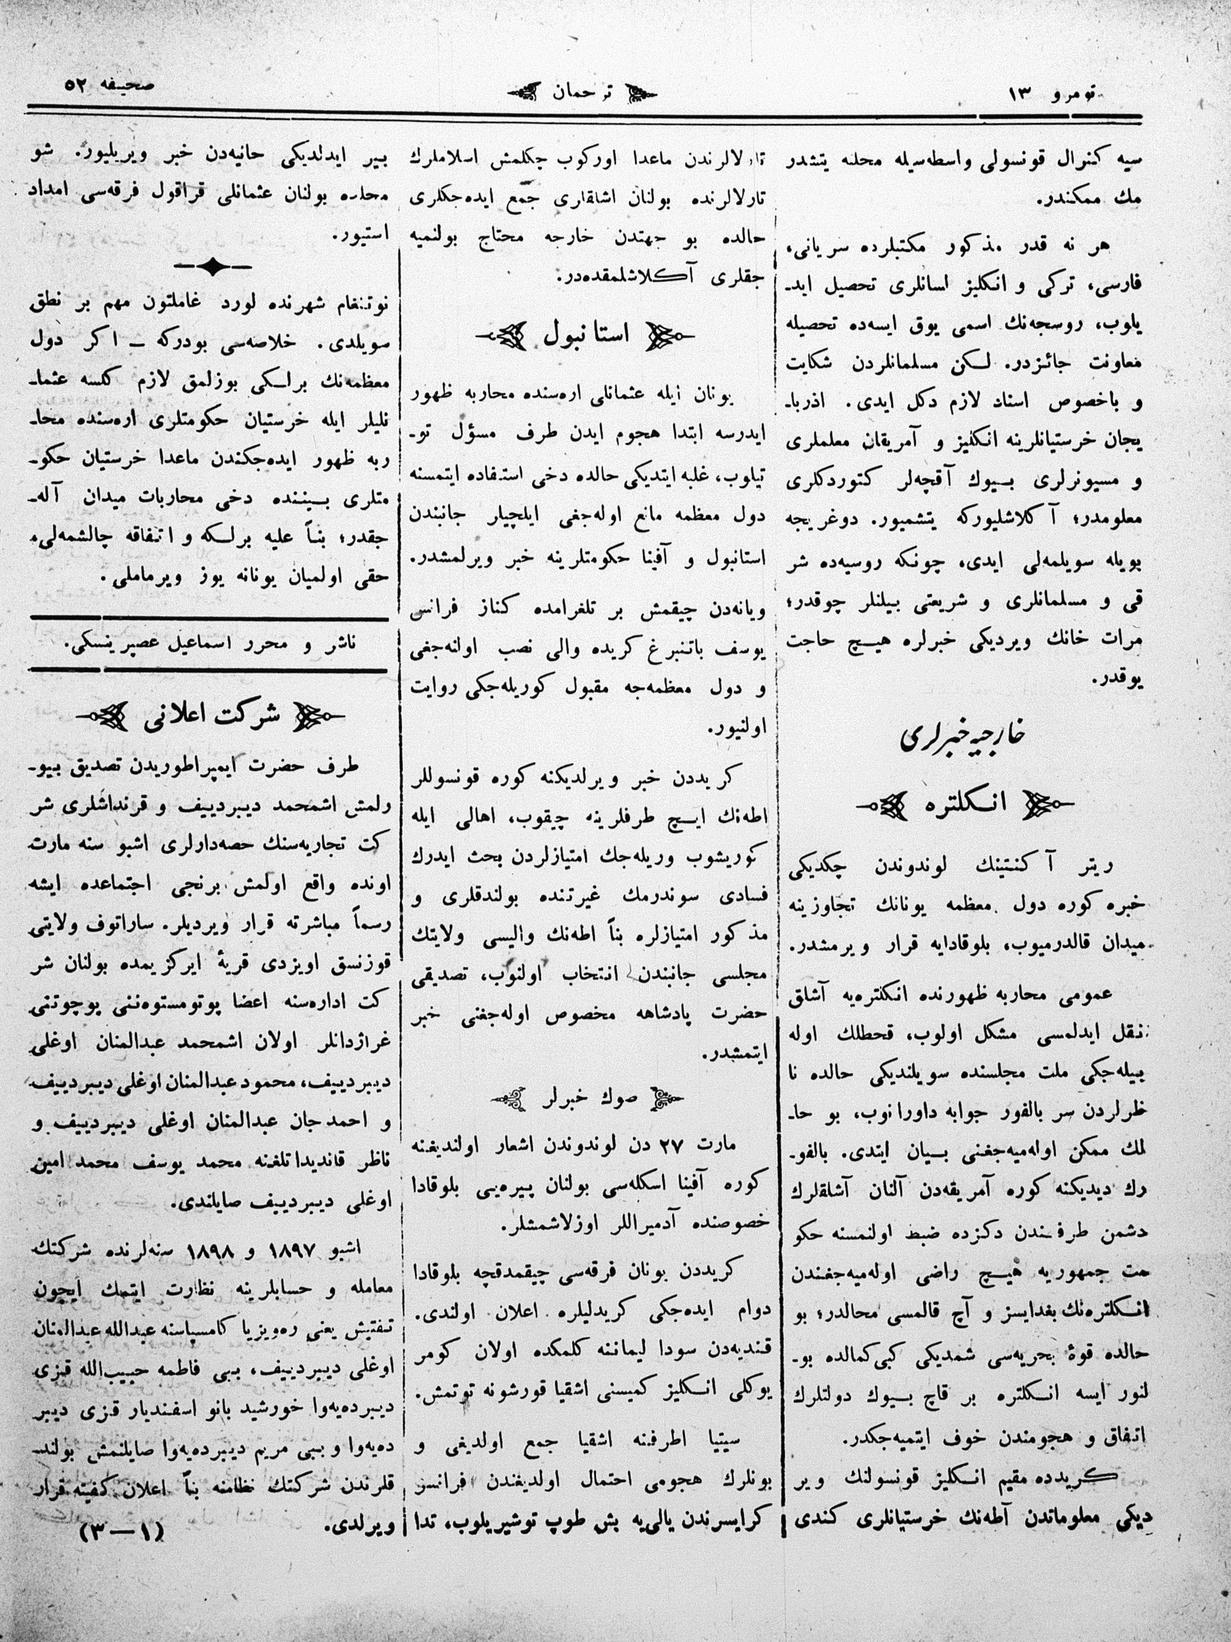 نومرو ١٣
ترجمان
صحیفه ٥٢
سیه کنرال قونسولی واسطه‌سیله محلنه یتشدر
مك ممکندر.
هر نه قدر مذکور مکتبلرده سریانی،
فارسی، ترکی و انکلیز لسانلری تحصیل ایدـ
یلوب، روسجه‌نك اسمی یوق ایسه‌ده تحصیله
معاونت جائزدر. لـکن مسلمانلردن شکایت
و باخصوص اسناد لازم دکل ایدی. اذرباـ
یجان خرستیانلرینه انکلیز و آمریقان معلملری
و مسیونرلری بـیوك آقچه‌لر کتوردکلری
معلومدر؛ آکلاشلیورکه یتشمیور. دوغریجه
بویله سویلمه‌لی ایدی، چونکه روسیه‌ده شر
قی و مسلمانلری و شریعتی بیلنلر چوقدر؛
مرات خانك ویردیکی خبرلره هیـچ حاجت
یوقدر.
خارجیه خبرلری
انـکلتره
ریتر آکنتینك لوندوندن چکدیکی
خبره کوره دول معظمه یونانك تجاوزینه
میدان قالدرمیوب، بلوقادایه قرار ویرمشدر.
عمومی محاربه ظهورنده انکلتره‌یه آشلق
نقل ایدلمسی مشکل اولوب، قحطلك اوله
بیله‌جکی ملت مجلسنده سویلندیکی حالده نا
ظرلردن سر بالفور جوابه داورانوب، بو حاـ
لمك ممکن اوله‌میه‌جغنی بـیان ایتدی. بالفوـ
رك دیدیکنه کوره آمریقه‌دن آلنان آشلقلرك
دشمن طرفـندن دکزده ضبط اولنمسنه حکو
مت جمهوریه هیـچ راضی اوله‌میه‌جغندن
انـکلتره‌نك بغدایسز و آچ قالمسی محالدر؛ بو
حالده قوۀ بحریه‌سی شمدیکی کبی کمالده بوـ
لنور ایسه انـکلتره بر قاچ بـیوك دولتلرك
اتفاق و هجومندن خوف ایتمیه‌جکدر.
کریـدده مقیم انـکلیز قونسولنك ویر
دیکی معلوماتدن آطه‌نك خرستیانلری کندی
تارلالرندن ماعدا اورکوب چکلمش اسلاملرك
تارلالرنده بولنان اشلقلری جمع ایده‌جکلری
حالده بو جهتدن خارجه محتاج بولنمیه
جقلری آکلاشلمقده‌در.
استانبول
یونان ایله عثمانلی اره‌سنده محاربه ظهور
ایدرسه ابتدا هجوم ایدن طرف مسؤل توـ
تیلوب، غلبه ایتدیکی حالده دخی استفاده ایتمسنه
دول معظمه مانع اوله‌جغی ایلچیلر جانبندن
استانبول و آفینا حکومتلرینه خبر ویرلمشدر.
ویانه‌دن چیقمش بر تلغرامده کناز فرانس
یوسف باتنبرغ کریده والی نصب اولنه‌جغی
و دول معظمه‌جه مقبول کوریله‌جکی روایت
اولنیور.
کریددن خبر ویرلدیکنه کوره قونسوللر
اطه‌نك ایـچ طرفلرینه چیقوب، اهالی ایله
کوریشوب وریله‌جك امتیازلردن بحث ایدرك
فسادی سوندرمك غیرتنده بولندقلری و
مذکور امتیازلره بنأ اطه‌نك والیسی ولایتك
مجلسی جانبندن انتخاب اولنوب، تصدیقی
حضرت پادشاهه مخصوص اوله‌جغنی خبر
ایتمشدر.
صوك خبرلر
مارت ٢٧ دن لوندوندن اشعار اولندیغنه
کوره آفینا اسکله‌سی بولنان پیره‌یی بلوقادا
خصوصنده آدمیراللر اوزلاشمشلر.
کریددن یونان فرقه‌سی چیقمدقچه بلوقادا
دوام ایده‌جکی کریدلیلره اعلان اولندی.
قندیه‌دن سودا لیماننه کلمکده اولان کومر
یوکلی انـکلیز کمیسنی اشقیا قورشونه توتمش.
سیتیا اطرفنه اشقیا جمع اولدیغی و
بونلرك هجومی احتمال اولدیغندن فرانسز
کرایسرندن یالی‌یه بش طوپ توشیریلوب، تدا
بیر ایدلدیکی حانیه‌دن خبر ویریلیور. شو
محلده بولنان عثمانلی قراقول فرقه‌سی امداد
استیور.
نوتنغام شهرنده لورد غاملتون مهم بر نطق
سویلدی. خلاصه‌سی بودرکه ــ اکر دول
معظمه‌نك برلـکی بوزلمق لازم کلسه عثماـ
نلیلر ایله خرستیان حکومتلری اره‌سنده محاـ
ربه ظهور ایده‌جکندن ماعدا خرستیان حکوـ
متلری بـیننده دخی محاربات میدان آلهـ
جقدر؛ بنأ علیه برلـکه و اتفاقه چالشمه‌لی،
حقی اولمیان یونانه یوز ویرماملی.
ناشر و محرر اسماعیل عصپرینسکی.
شرکت اعلانی
طرف حضرت ایمپراطوریدن تصدیق بیوـ
رلمش اشمحمد دیبردییف و قرنداشلری شر
کت تجاریه‌سنك حصه‌دارلری اشبو سنه مارت
اونده واقع اولمش برنجی اجتماعده ایشه
رسماً مباشرته قرار ویردیلر. ساراتوف ولایتی
قوزنسق اویزدی قریۀ ایرکزیمده بولنان شر
کت اداره‌سنه اعضا پوتومستوه‌ننی پوچوتنی
غراژدانلر اولان اشمحمد عبدالمنان اوغلی
دیبردییف، محمود عبدالمنان اوغلی دیبردییف
و احمدجان عبدالمنان اوغلی دیبردییف و
ناظر قاندیداتلغنه محمد یوسف محمد امین
اوغلی دیبردییف صایلندی.
اشبو ١٨٩٧ و ١٨٩٨ سنه‌لرنده شرکتك
معامله و حسابلرینه نظارت ایتمك ایچون
تفتیش یعنی ره‌ویزیا کامسیاسنه عبدالله عبدالمنان
اوغلی دیبردییف، بـبی فاطمه حبیب‌الله قیزی
دیبرده‌یه‌وا خورشید بانو اسفندیار قیزی دیبر
ده‌یه‌وا و بـبی مریم دیبرده‌یه‌وا صایلنمش بولند
قلرندن شرکتك نظامنه بنأ اعلان کفیته قرار
ویرلدی.
(١—٣)